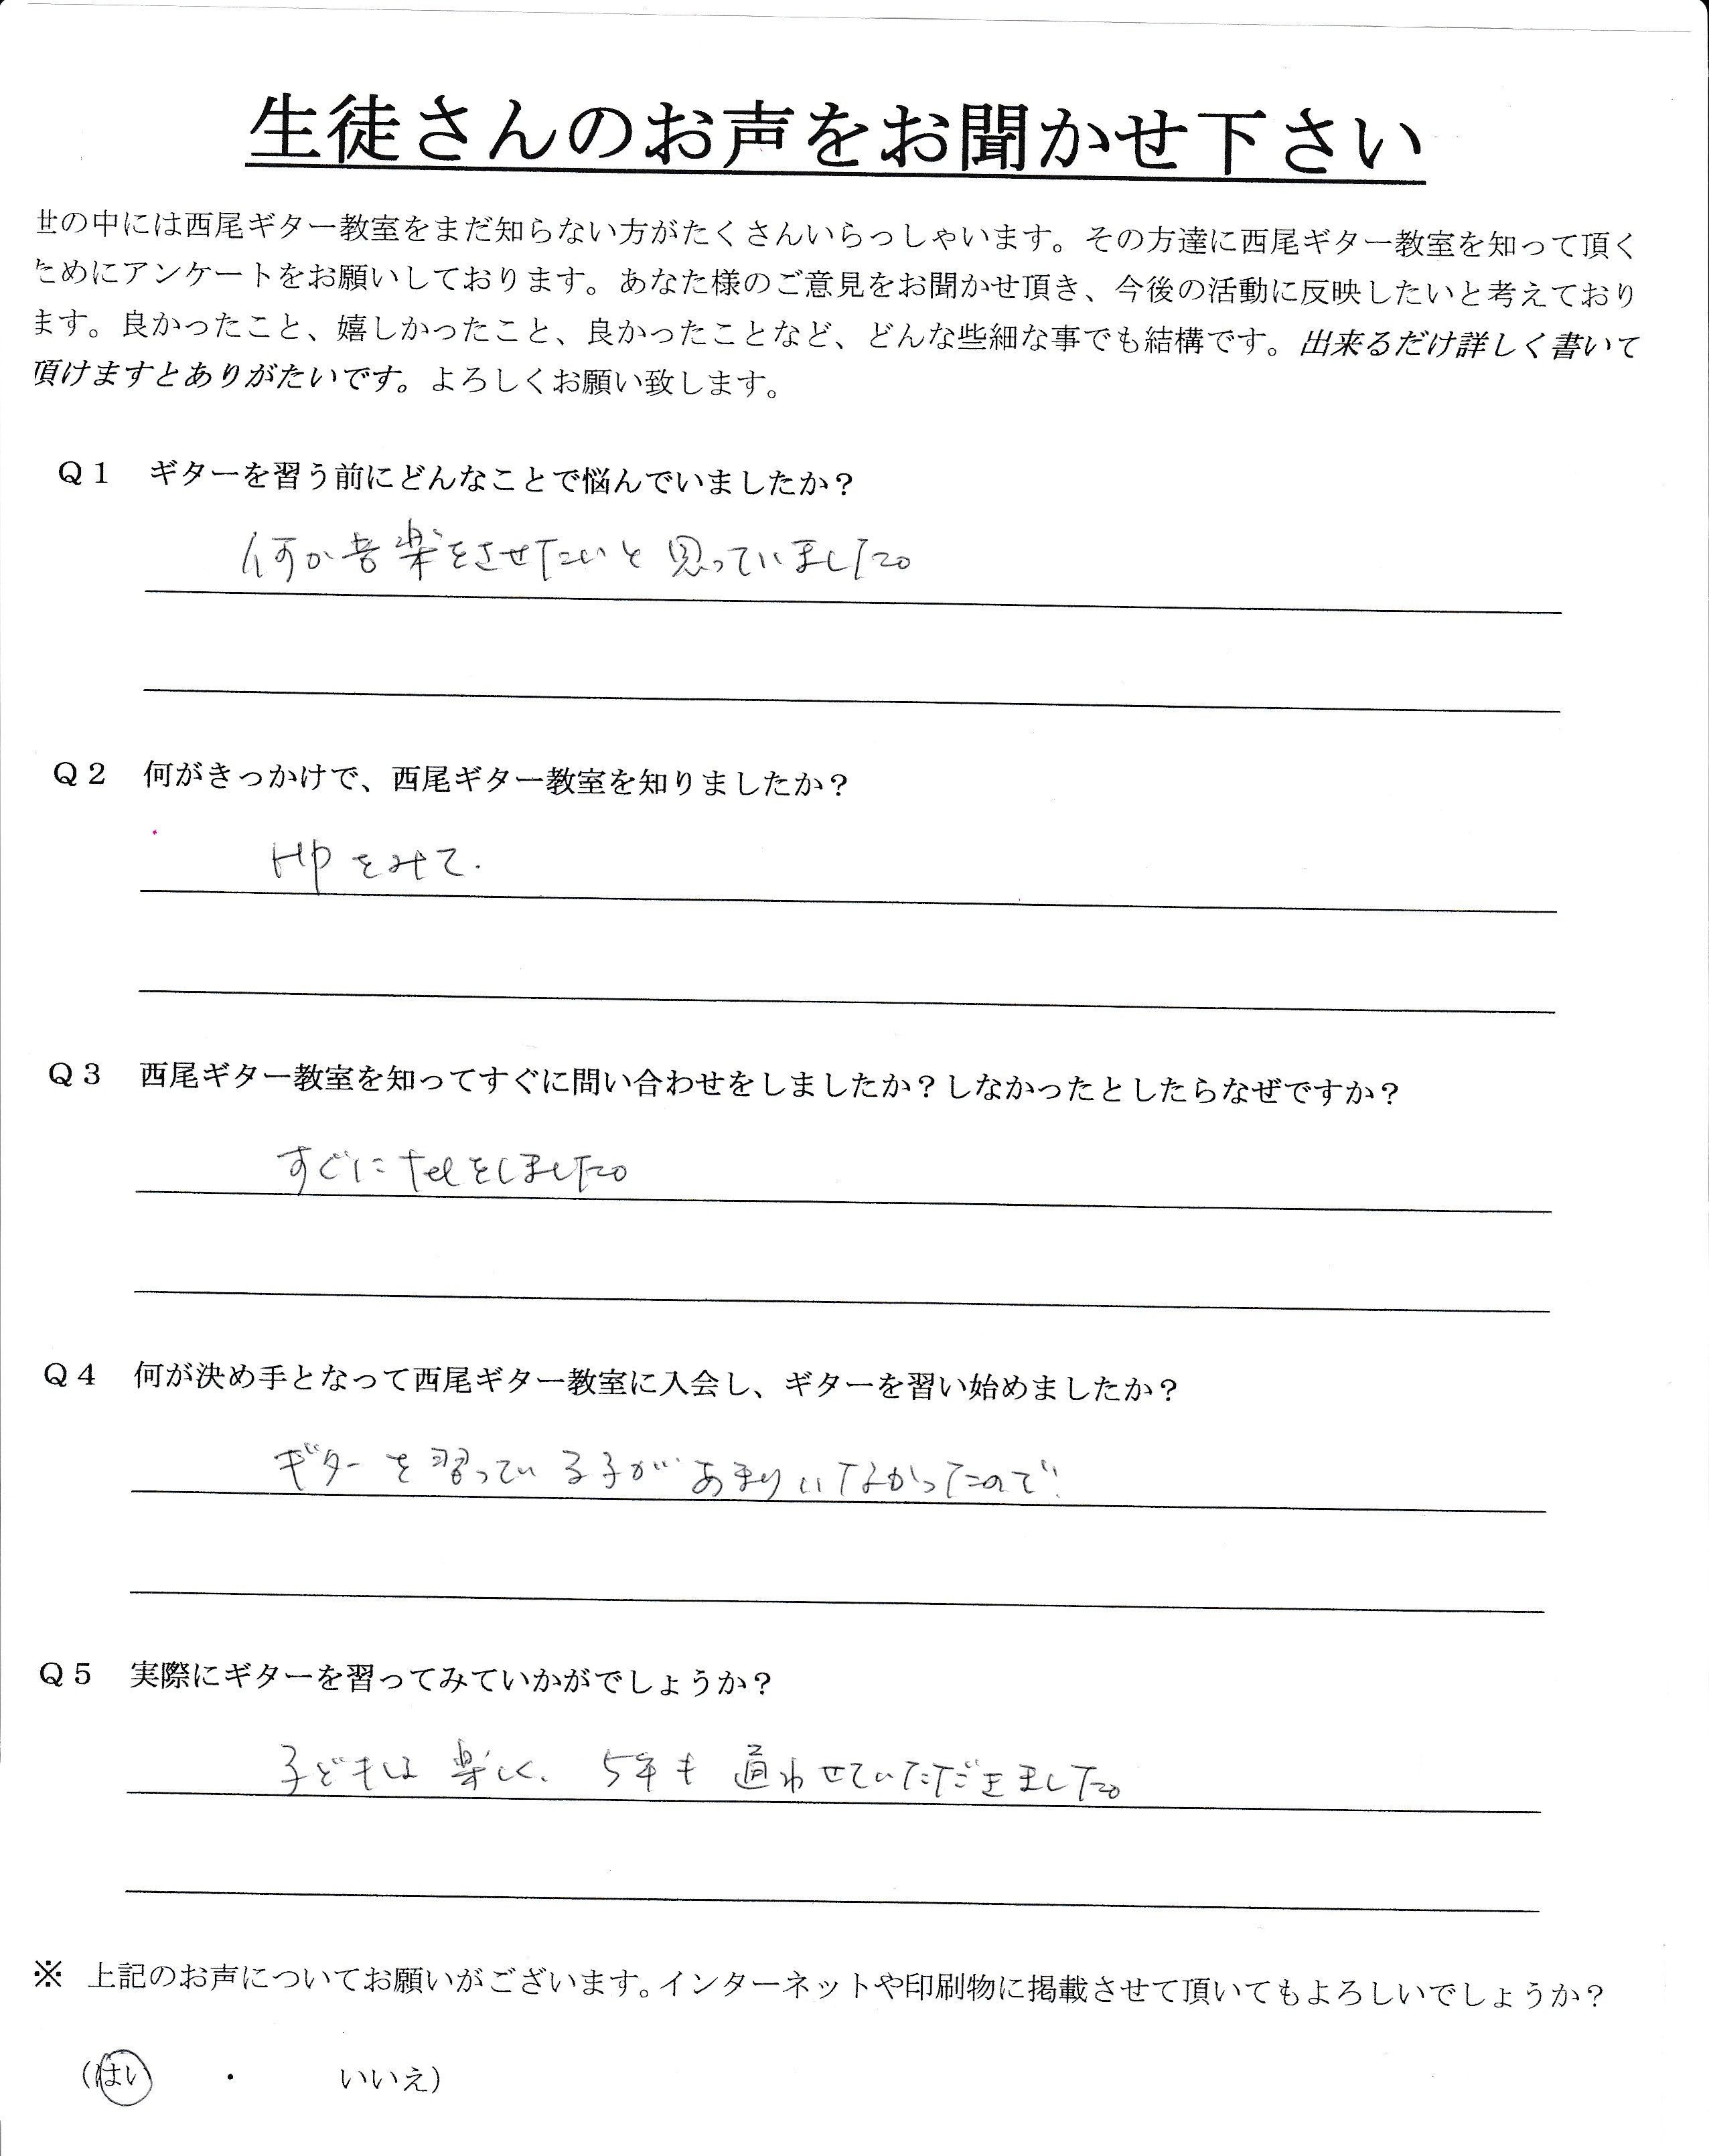 生徒さんのお声をお聞かせ下さい
世の中には西尾ギター教室をまだ知らない方がたくさんいらっしゃいます。その方達に西尾ギター教室を知って頂く
ためにアンケートをお願いしております。あなた様のご意見をお聞かせ頂き、今後の活動に反映したいと考えており
ます。良かったこと、嬉しかったこと、良かったことなど、どんな些細な事でも結構です。出来るだけ詳しく書いて
頂けますとありがたいです。よろしくお願い致します。
Q1 ギターを習う前にどんなことで悩んでいましたか？
何か音楽をさせたいと思っていました。
Q2 何がきっかけで、西尾ギター教室を知りましたか？
HPをみて.
Q3 西尾ギター教室を知ってすぐに問い合わせをしましたか？しなかったとしたらなぜですか？
すぐにtelをしました。
Q4 何が決め手となって西尾ギター教室に入会し、ギターを習い始めましたか？
ギターを習っている子があまりいなかったので.
Q5 実際にギターを習ってみていかがでしょうか？
子どもは楽しく、5年も通わせていただきました。
※ 上記のお声についてお願いがございます。インターネットや印刷物に掲載させて頂いてもよろしいでしょうか？
(はい ・ いいえ)